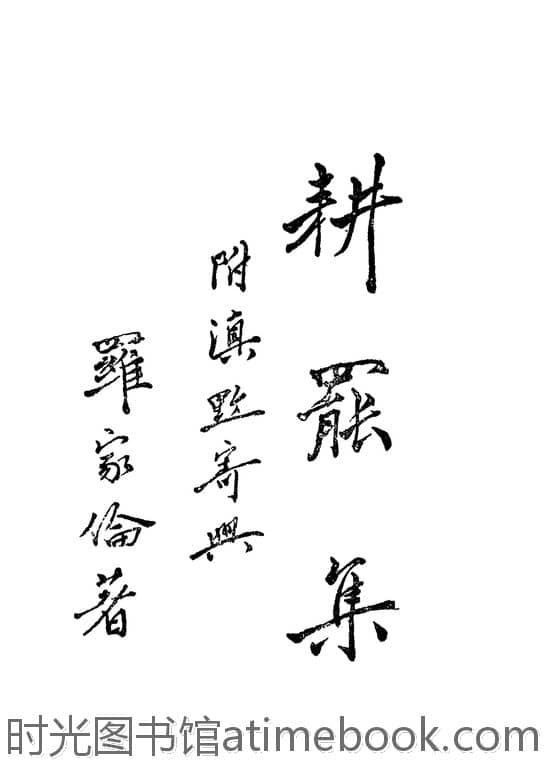 耕罷集
附滇黔寄興
羅家倫著
时光图书馆atimebook.com